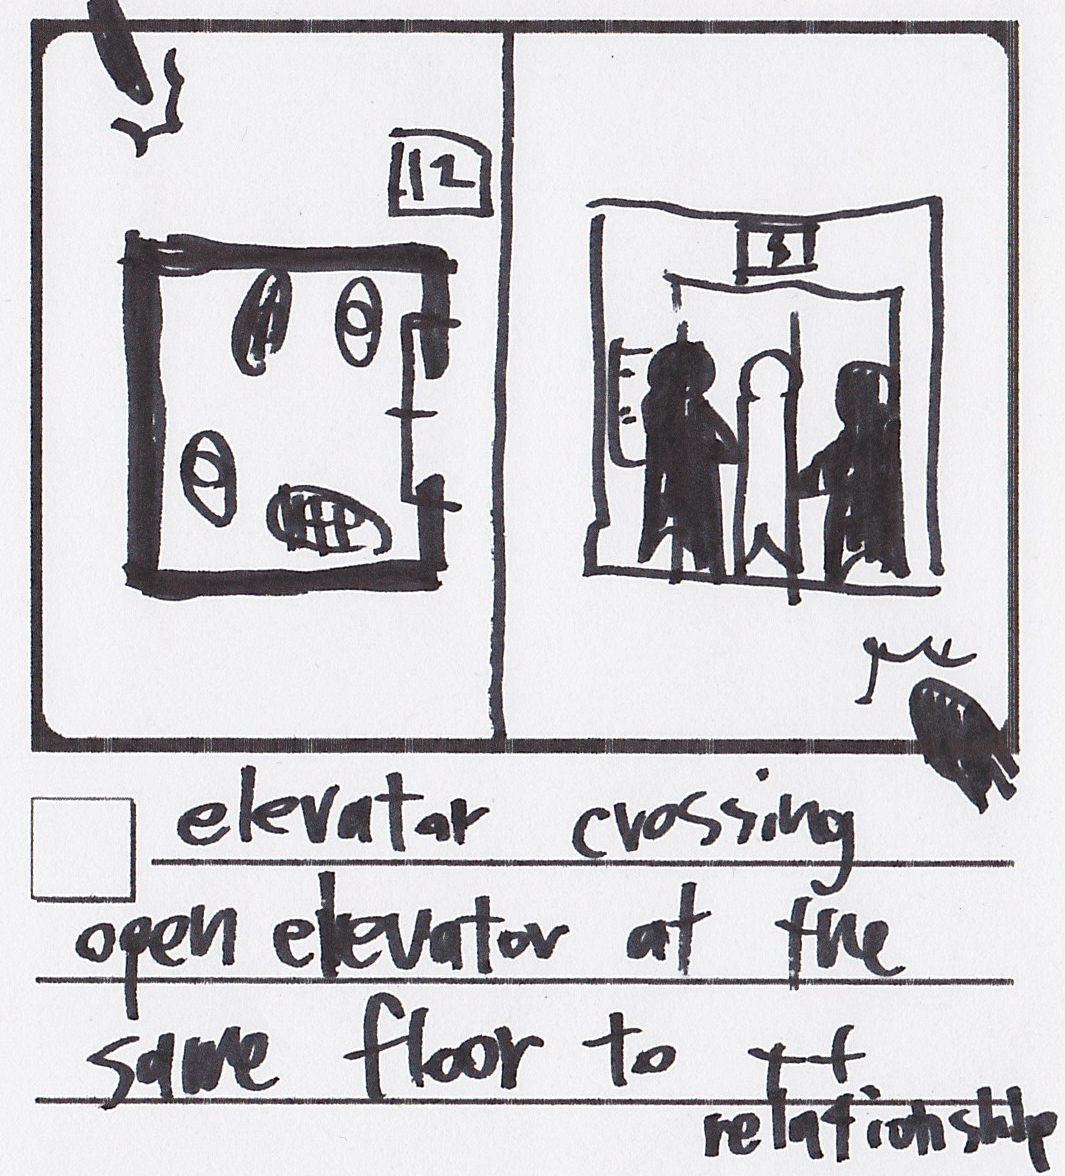 12
elevator crossing
open elevator at the
same floor to
relationship